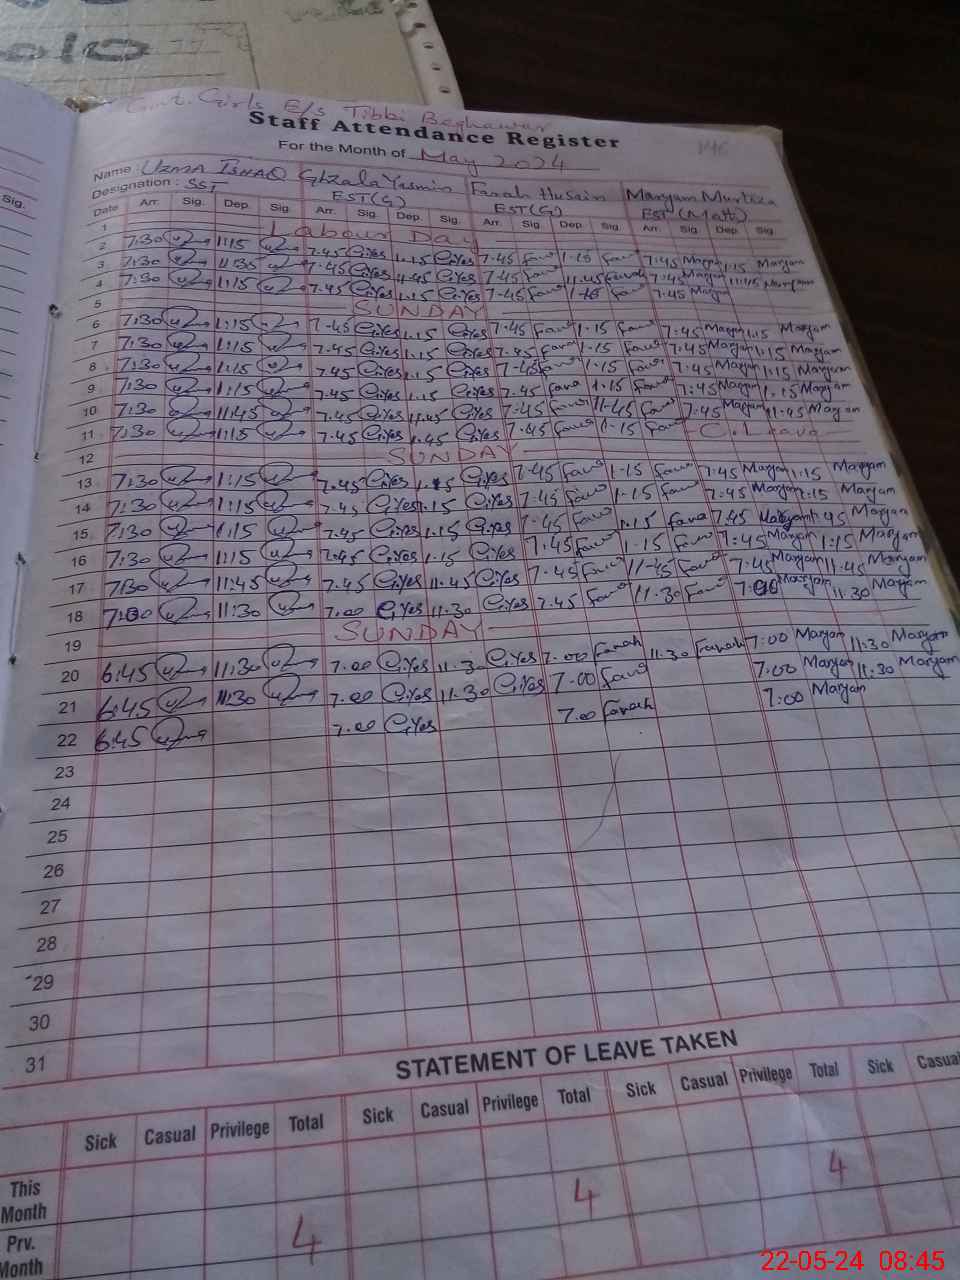 Govt. Girls E/s Tibbi Beghawar
Staff Attendance Register
For the Month of May 2024
146
Name: UZMA ISHAQ Ghzala Yasmin Farah Husain Maryam Murtiza
Designation: SST EST(G) EST(G) EST (Math)
Sig.
Date Arr. Sig. Dep. Sig. Arr. Sig. Dep. Sig. Arr. Sig. Dep. Sig. Arr. Sig. Dep. Sig.
1 Labour Day
2 7:30 1:15 7.45 G.Yes 1.15 G.Yes 7-45 Fara 1-15 Fara 7.45 Maryam 1:15 Maryam
3 7:30 11:35 7.45 G.Yes 11.45 G.Yes 7-45 Fara 11.45 Farah 7.45 Maryam 11:45 Maryam
4 7:30 1:15 7.45 G.Yes 1.15 G.Yes 7-45 Fara 1-15 Fara 7.45 Maryam
5 SUNDAY
6 7:30 1:15 7.45 G.Yes 1.15 G.Yes 7-45 Fara 1-15 Fara 7.45 Maryam 1:15 Maryam
7 7:30 1:15 7.45 G.Yes 1.15 G.Yes 7-45 Fara 1-15 Fara 7.45 Maryam 1:15 Maryam
8 7:30 1:15 7.45 G.Yes 1.15 G.Yes 7-45 Fara 1-15 Fara 7.45 Maryam 1:15 Maryam
9 7:30 1:15 7.45 G.Yes 1.15 G.Yes 7-45 Fara 1-15 Fara 7:45 Maryam 1.15 Maryam
10 7:30 11:45 7.45 G.Yes 11.45 G.Yes 7-45 Fara 11-45 Fara 7.45 Maryam 11.45 Maryam
11 7:30 1:15 7.45 G.Yes 1.45 G.Yes 7-45 Fara 1-15 Fara C.Leave
12 SUNDAY
13 7:30 1:15 7.45 G.Yes 1.15 G.Yes 7-45 Fara 1-15 Fara 7.45 Maryam 1:15 Maryam
14 7:30 1:15 7.45 G.Yes 1.15 G.Yes 7-45 Fara 1-15 Fara 7.45 Maryam 1:15 Maryam
15 7:30 1:15 7.45 G.Yes 1.15 G.Yes 7-45 Fara 1.15 Fara 7.45 Maryam 1:45 Maryam
16 7:30 1:15 7.45 G.Yes 1.15 G.Yes 7.45 Fara 1-15 Fara 7.45 Maryam 1:15 Maryam
17 7:30 11:45 7.45 G.Yes 11.45 G.Yes 7-45 Fara 11-45 Fara 7.45 Maryam 11:45 Maryam
18 7:00 11:30 7.00 G.Yes 11.30 G.Yes 7.45 Fara 11.30 Fara 7:00 Maryam 11.30 Maryam
19 SUNDAY
20 6:45 11:30 7.00 G.Yes 11.30 G.Yes 7.00 Farah 11.30 Farah 7:00 Maryam 11:30 Maryam
21 6:45 11:30 7.00 G.Yes 11.30 G.Yes 7.00 Fara 7.00 Maryam 11:30 Maryam
22 6:45 7.00 G.Yes 7.00 Farah 7:00 Maryam
23
24
25
26
27
28
29
30
31
STATEMENT OF LEAVE TAKEN
Sick Casual Privilege Total Sick Casual Privilege Total Sick Casual Privilege Total Sick Casual
This Month
Prv. Month 4 4 4
22-05-24 08:45